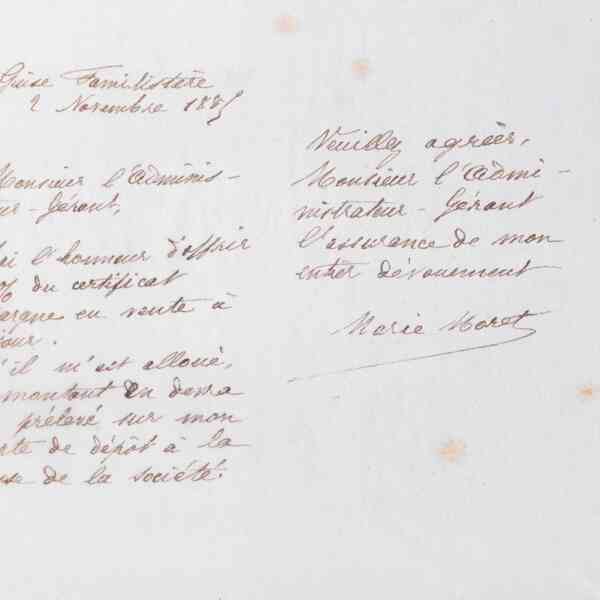 Guise Familistère
2 Novembre 188
Monsieur l'Adminis-
-Gérant,
l'honneur d'offrir
% du certificat
en vente à
jour.
il m'est alloué,
montant en devra
prélevé sur mon
de dépôt à la
de la société.
Veuillez agréer,
Monsieur l'Admi-
nistrateur-Gérant
l'assurance de mon
entier dévouement
Marie Moret